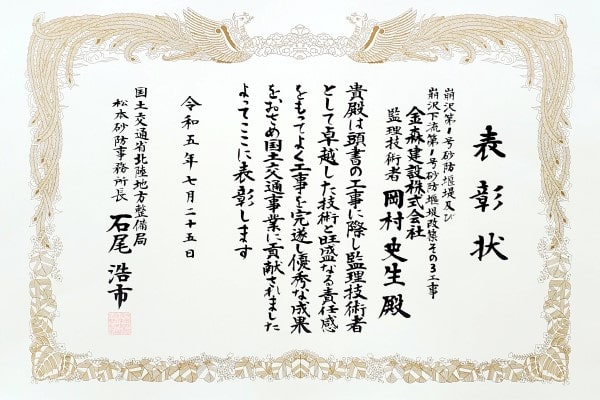 表彰状
崩沢第1号砂防堰堤及び
崩沢下流第1号砂防堰堤改築その3工事
金森建設株式会社
監理技術者 岡村史生殿
貴殿は頭書の工事に際し監理技術者
として卓越した技術と旺盛なる責任感
をもってよく工事を完遂し優秀な成果
を、おさめ国土交通事業に貢献されました
よってここに表彰します
令和五年七月二十五日
国土交通省北陸地方整備局
松本砂防事務所長 石尾浩市